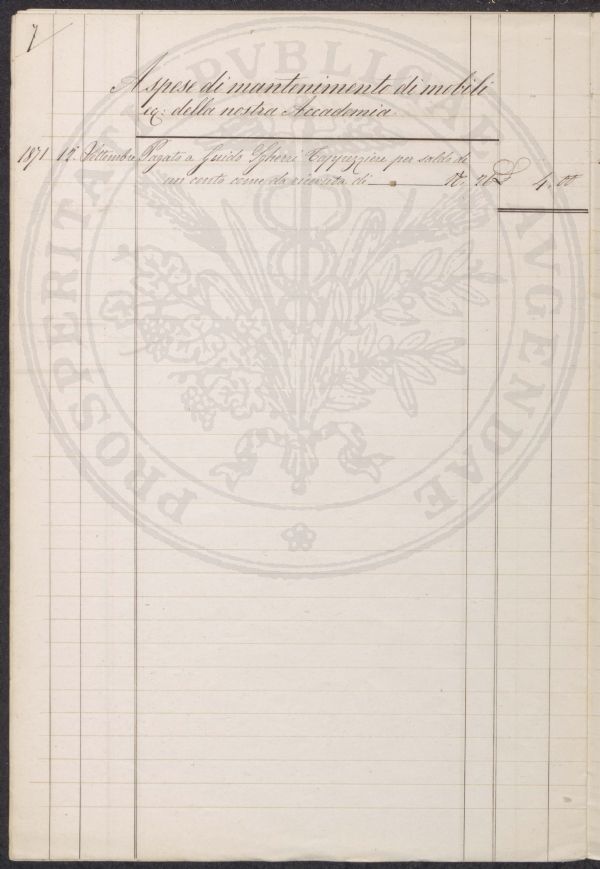 7
A spese di mantenimento di mobili
eg: della nostra Accademia.
1871 12 Settembre Pagato a Guido Tappezziere per saldo di
un conto come da ricevuta di N. 26 £ 4.00
PROSPERITATI PUBLICAE AVGENDAE